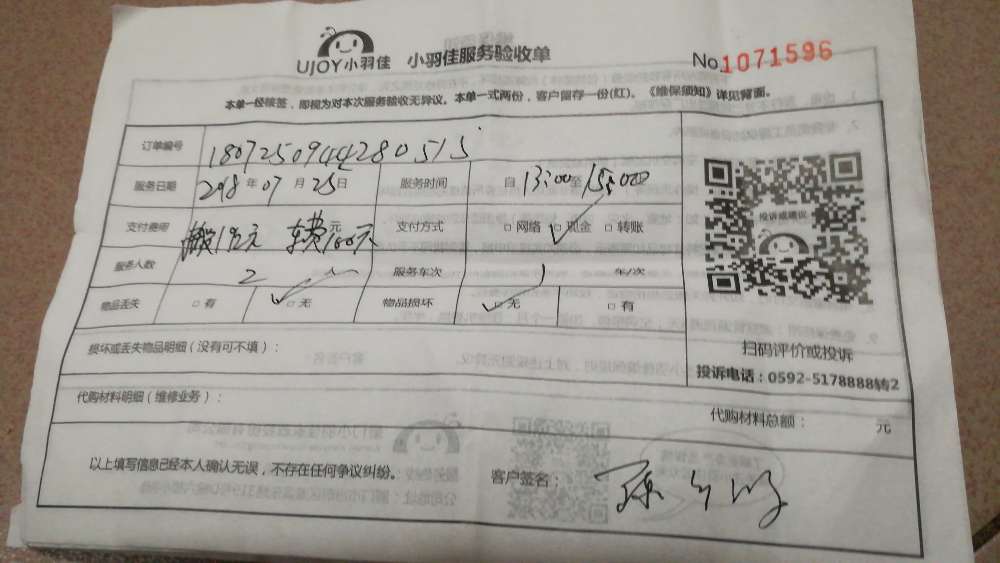 UJOY小羽佳 小羽佳服务验收单
No.1071596
本单一经核签，即视为对本次服务验收无异议。本单一式两份，客户留存一份(红)。《维保须知》详见背面。
订单编号 1807250944280515
服务日期 2018年07月25日 服务时间 自13:00至15:00
支付费用 元 车费100元 支付方式 □网络 □现金 □转账
服务人数 2 服务车次 1 车/次
物品丢失 □有 □无 物品损坏 □无 □有
投诉或建议
扫码评价或投诉
投诉电话：0592-5178888转2
损坏或丢失物品明细（没有可不填）：
代购材料明细（维修业务）： 代购材料总额： 元
以上填写信息已经本人确认无误，不存在任何争议纠纷。 客户签名：